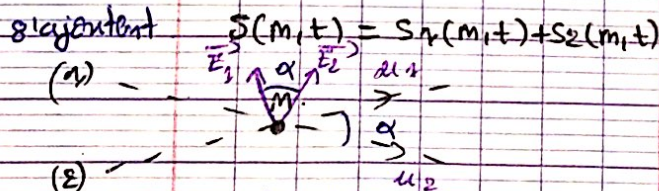 s'ajoutent S(M,t) = S1(M,t)+S2(M,t)
E1 α E2 u1
(1) M
α
(2) u2